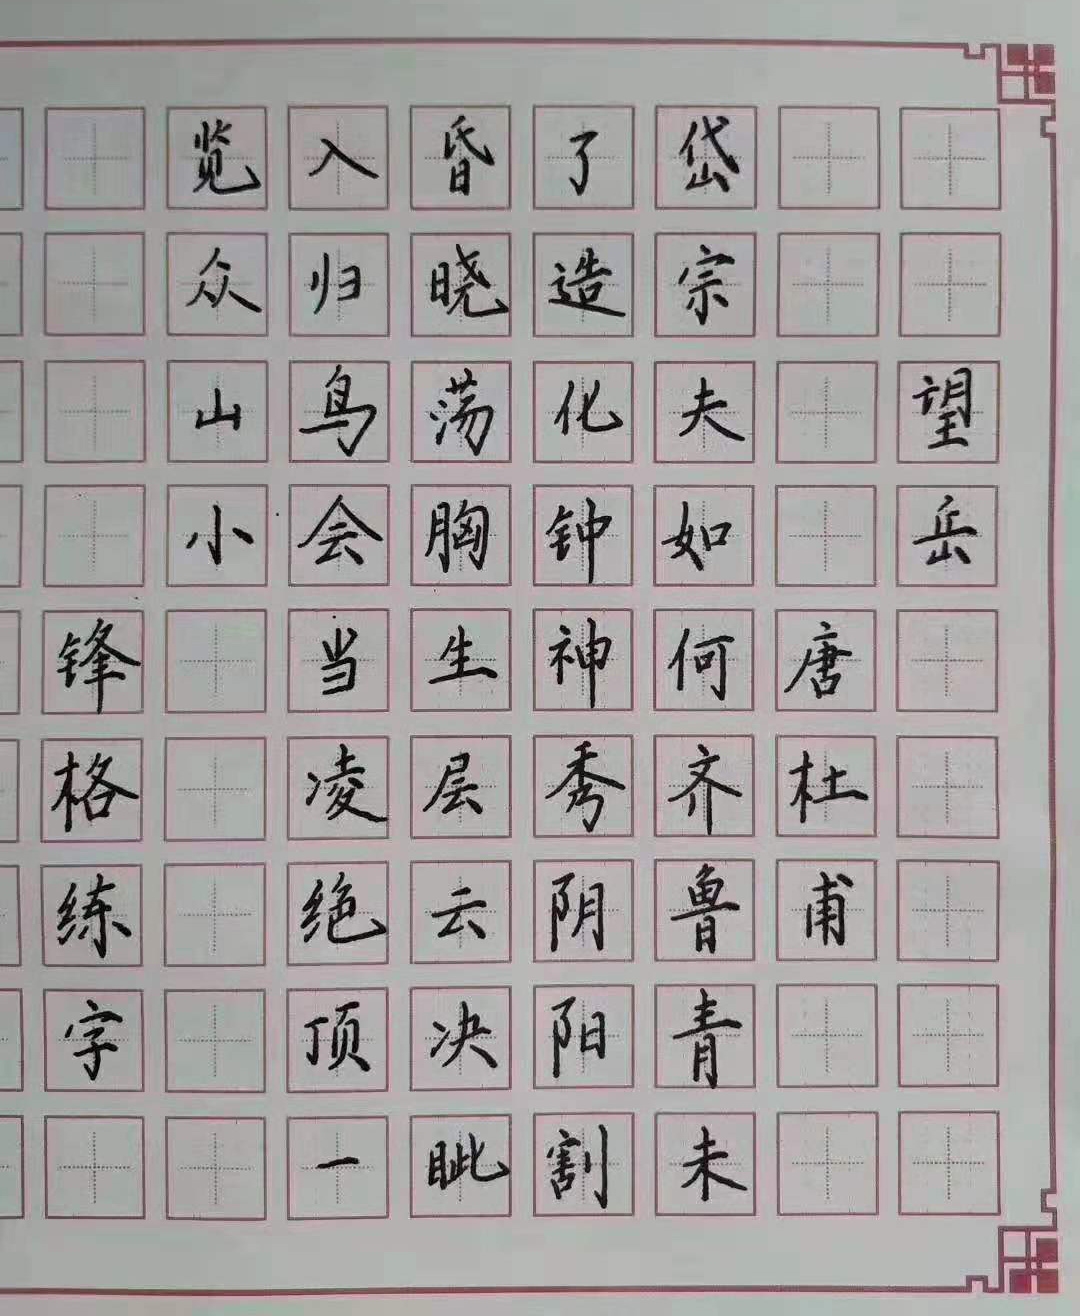 望岳
唐杜甫
岱宗夫如何齐鲁青未
了造化钟神秀阴阳割
昏晓荡胸生层云决眦
入归鸟会当凌绝顶一
览众山小
锋格练字